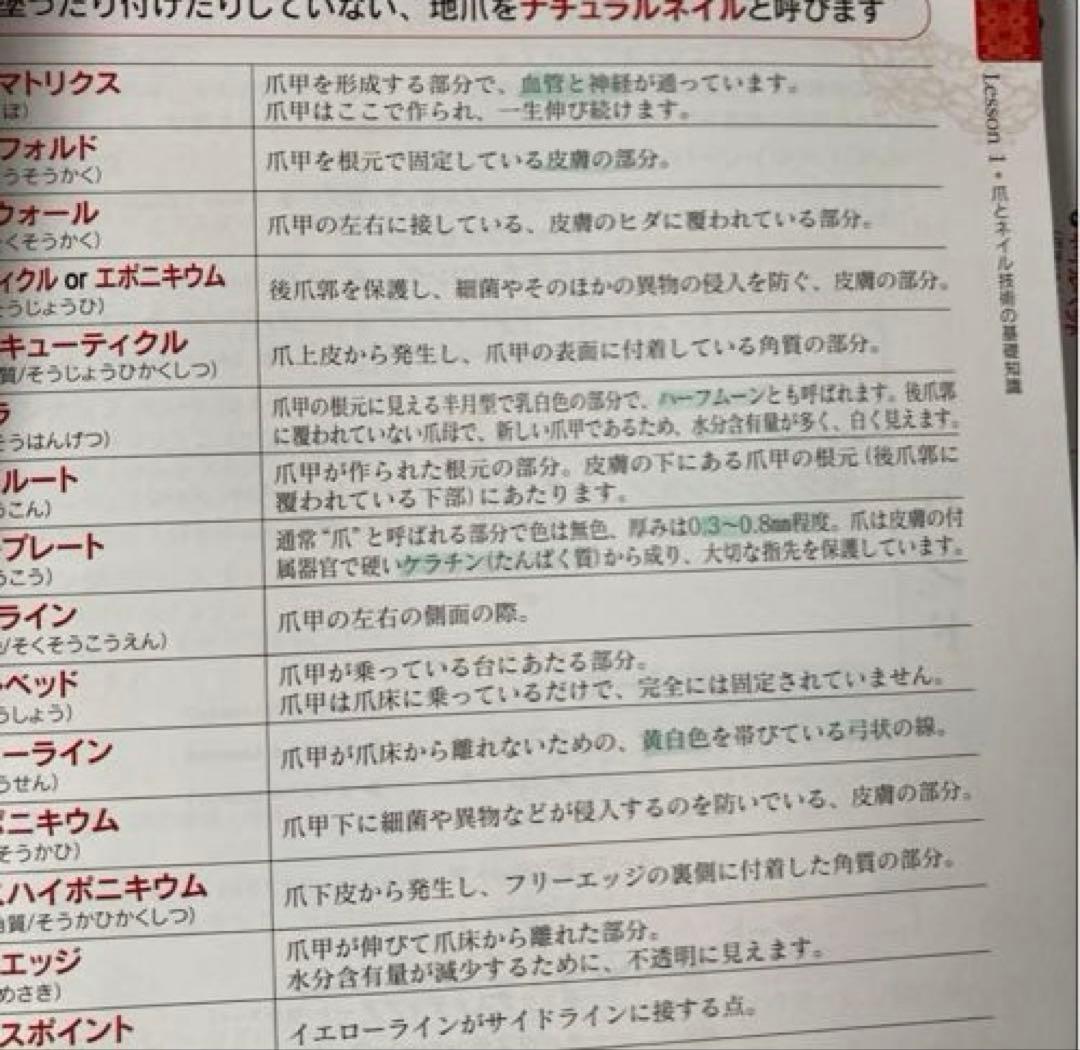 塗ったり付けたりしていない、地爪をナチュラルネイルと呼びます
マトリクス
ぼ)
爪甲を形成する部分で、血管と神経が通っています。
爪甲はここで作られ、一生伸び続けます。
フォルド
うそうかく)
爪甲を根元で固定している皮膚の部分。
ウォール
くそうかく)
爪甲の左右に接している、皮膚のヒダに覆われている部分。
ィクル or エポニキウム
うじょうひ)
後爪郭を保護し、細菌やそのほかの異物の侵入を防ぐ、皮膚の部分。
キューティクル
質/そうじょうひかくしつ)
爪上皮から発生し、爪甲の表面に付着している角質の部分。
ラ
そうはんげつ)
爪甲の根元に見える半月型で乳白色の部分で、ハーフムーンとも呼ばれます。後爪郭
に覆われていない爪母で、新しい爪甲であるため、水分含有量が多く、白く見えます。
ルート
うこん)
爪甲が作られた根元の部分。皮膚の下にある爪甲の根元(後爪郭に
覆われている下部)にあたります。
プレート
うこう)
通常“爪”と呼ばれる部分で色は無色、厚みは0.3〜0.8㎜程度。爪は皮膚の付
属器官で硬いケラチン(たんぱく質)から成り、大切な指先を保護しています。
ライン
/そくそうこうえん)
爪甲の左右の側面の際。
ベッド
うしょう)
爪甲が乗っている台にあたる部分。
爪甲は爪床に乗っているだけで、完全には固定されていません。
ーライン
うせん)
爪甲が爪床から離れないための、黄白色を帯びている弓状の線。
ポニキウム
そうかひ)
爪甲下に細菌や異物などが侵入するのを防いでいる、皮膚の部分。
ハイポニキウム
質/そうかひかくしつ)
爪下皮から発生し、フリーエッジの裏側に付着した角質の部分。
エッジ
めさき)
爪甲が伸びて爪床から離れた部分。
水分含有量が減少するために、不透明に見えます。
スポイント
イエローラインがサイドラインに接する点。
Lesson 1・爪とネイル技術の基礎知識